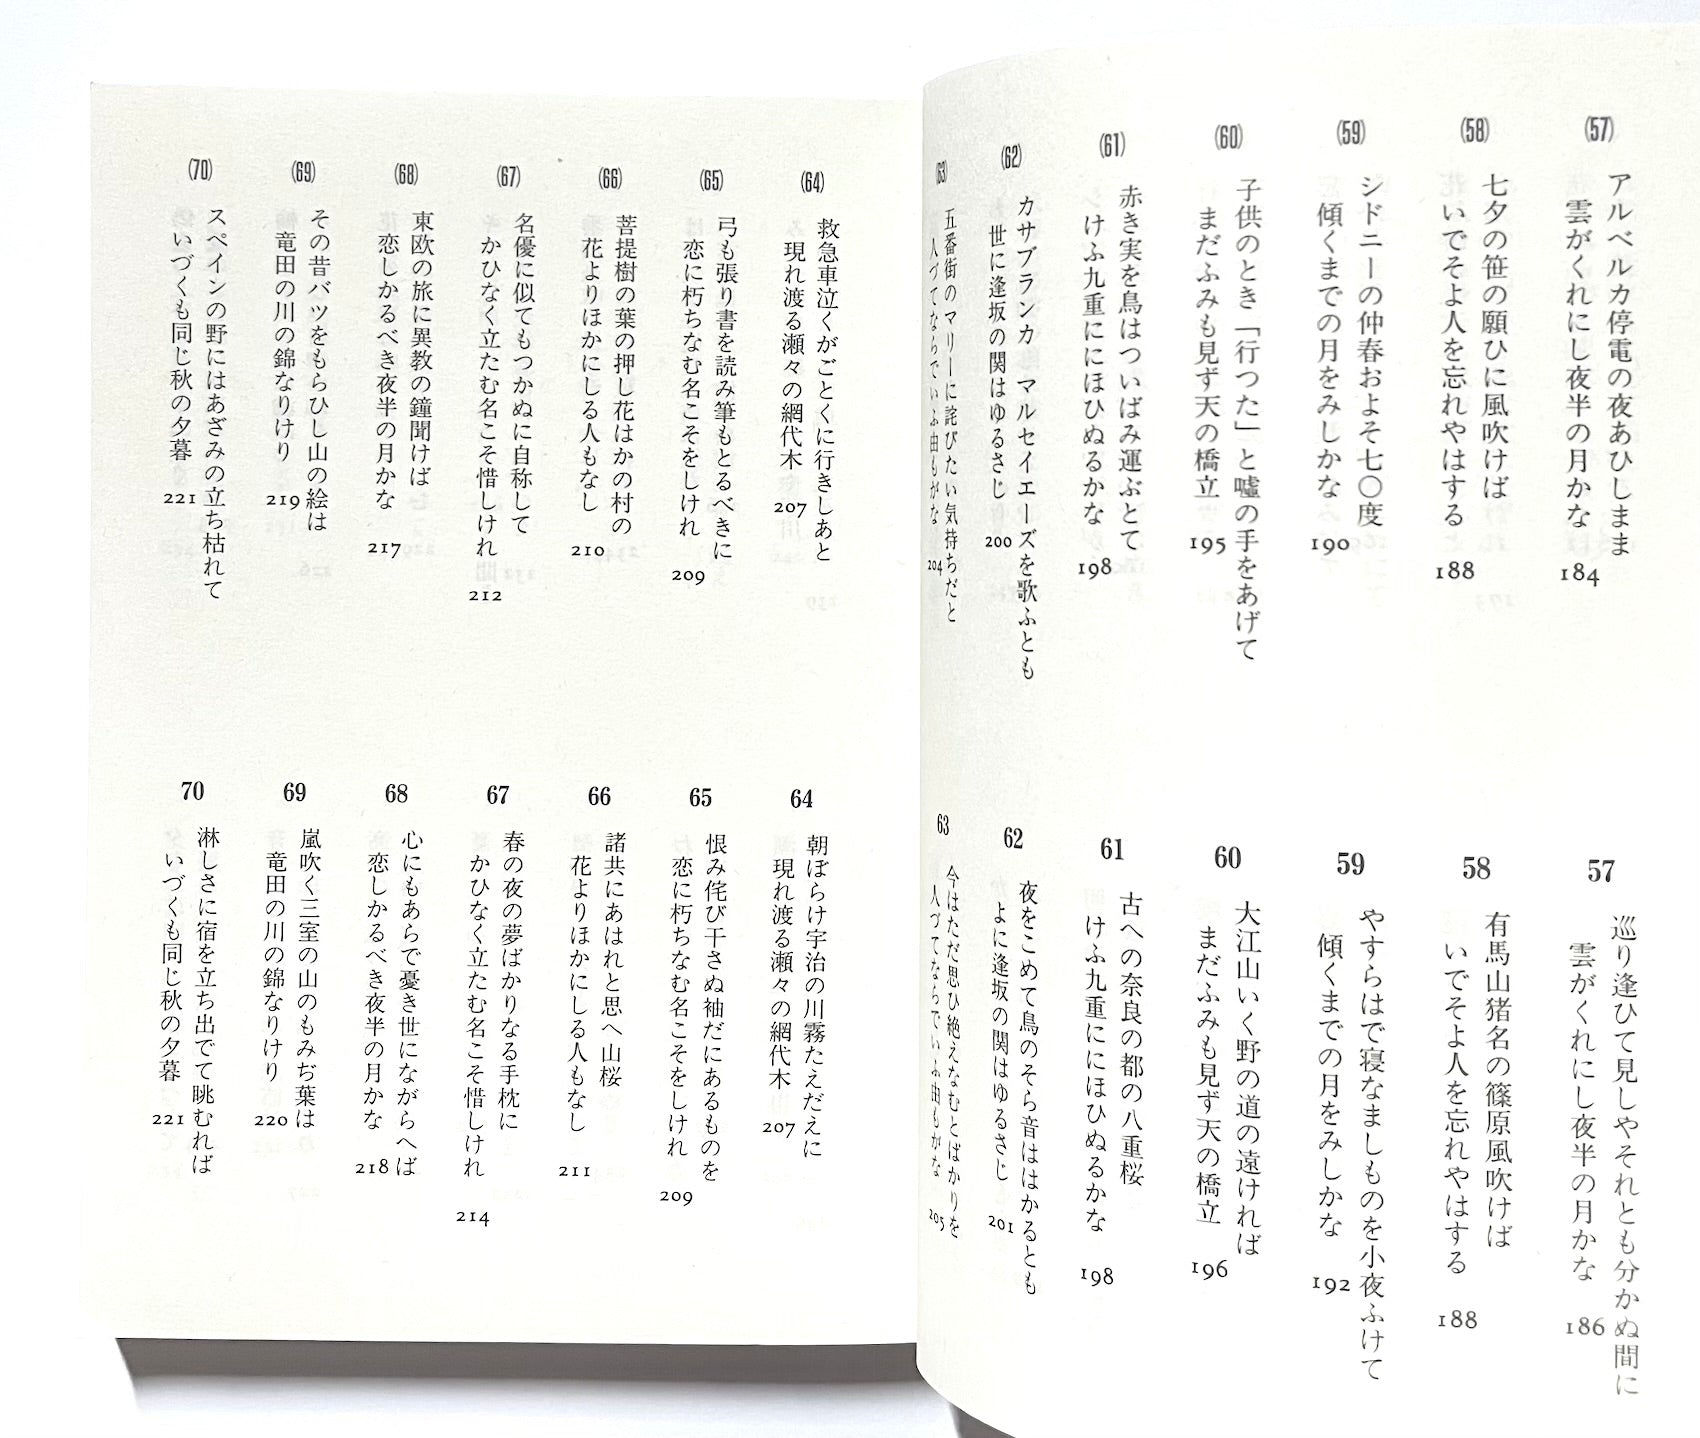 (57)
アルベルカ停電の夜あひしまま
雲がくれにし夜半の月かな
184
(58)
七夕の笹の願ひに風吹けば
いでそよ人を忘れやはする
188
(59)
シドニーの仲春およそ七〇度
傾くまでの月をみしかな
190
(60)
子供のとき「行つた」と嘘の手をあげて
まだふみも見ず天の橋立
195
(61)
赤き実を鳥はついばみ運ぶとて
けふ九重ににほひぬるかな
198
(62)
カサブランカ マルセイエーズを歌ふとも
世に逢坂の関はゆるさじ
200
(63)
五番街のマリーに詫びたい気持ちだと
人づてならでいふ由もがな
204
57
巡り逢ひて見しやそれとも分かぬ間に
雲がくれにし夜半の月かな
186
58
有馬山猪名の篠原風吹けば
いでそよ人を忘れやはする
188
59
やすらはで寝なましものを小夜ふけて
傾くまでの月をみしかな
192
60
大江山いく野の道の遠ければ
まだふみも見ず天の橋立
196
61
古への奈良の都の八重桜
けふ九重ににほひぬるかな
198
62
夜をこめて鳥のそら音ははかるとも
よに逢坂の関はゆるさじ
201
63
今はただ思ひ絶えなむとばかりを
人づてならでいふ由もがな
205
(64)
救急車泣くがごとくに行きしあと
現れ渡る瀬々の網代木
207
(65)
弓も張り書を読み筆もとるべきに
恋に朽ちなむ名こそをしけれ
209
(66)
菩提樹の葉の押し花はかの村の
花よりほかにしる人もなし
210
(67)
名優に似てもつかぬに自称して
かひなく立たむ名こそ惜しけれ
212
(68)
東欧の旅に異教の鐘聞けば
恋しかるべき夜半の月かな
217
(69)
その昔バツをもらひし山の絵は
竜田の川の錦なりけり
219
(70)
スペインの野にはあざみの立ち枯れて
いづくも同じ秋の夕暮
221
64
朝ぼらけ宇治の川霧たえだえに
現れ渡る瀬々の網代木
207
65
恨み侘び干さぬ袖だにあるものを
恋に朽ちなむ名こそをしけれ
209
66
諸共にあはれと思へ山桜
花よりほかにしる人もなし
211
67
春の夜の夢ばかりなる手枕に
かひなく立たむ名こそ惜しけれ
214
68
心にもあらで憂き世にながらへば
恋しかるべき夜半の月かな
218
69
嵐吹く三室の山のもみぢ葉は
竜田の川の錦なりけり
220
70
淋しさに宿を立ち出でて眺むれば
いづくも同じ秋の夕暮
221